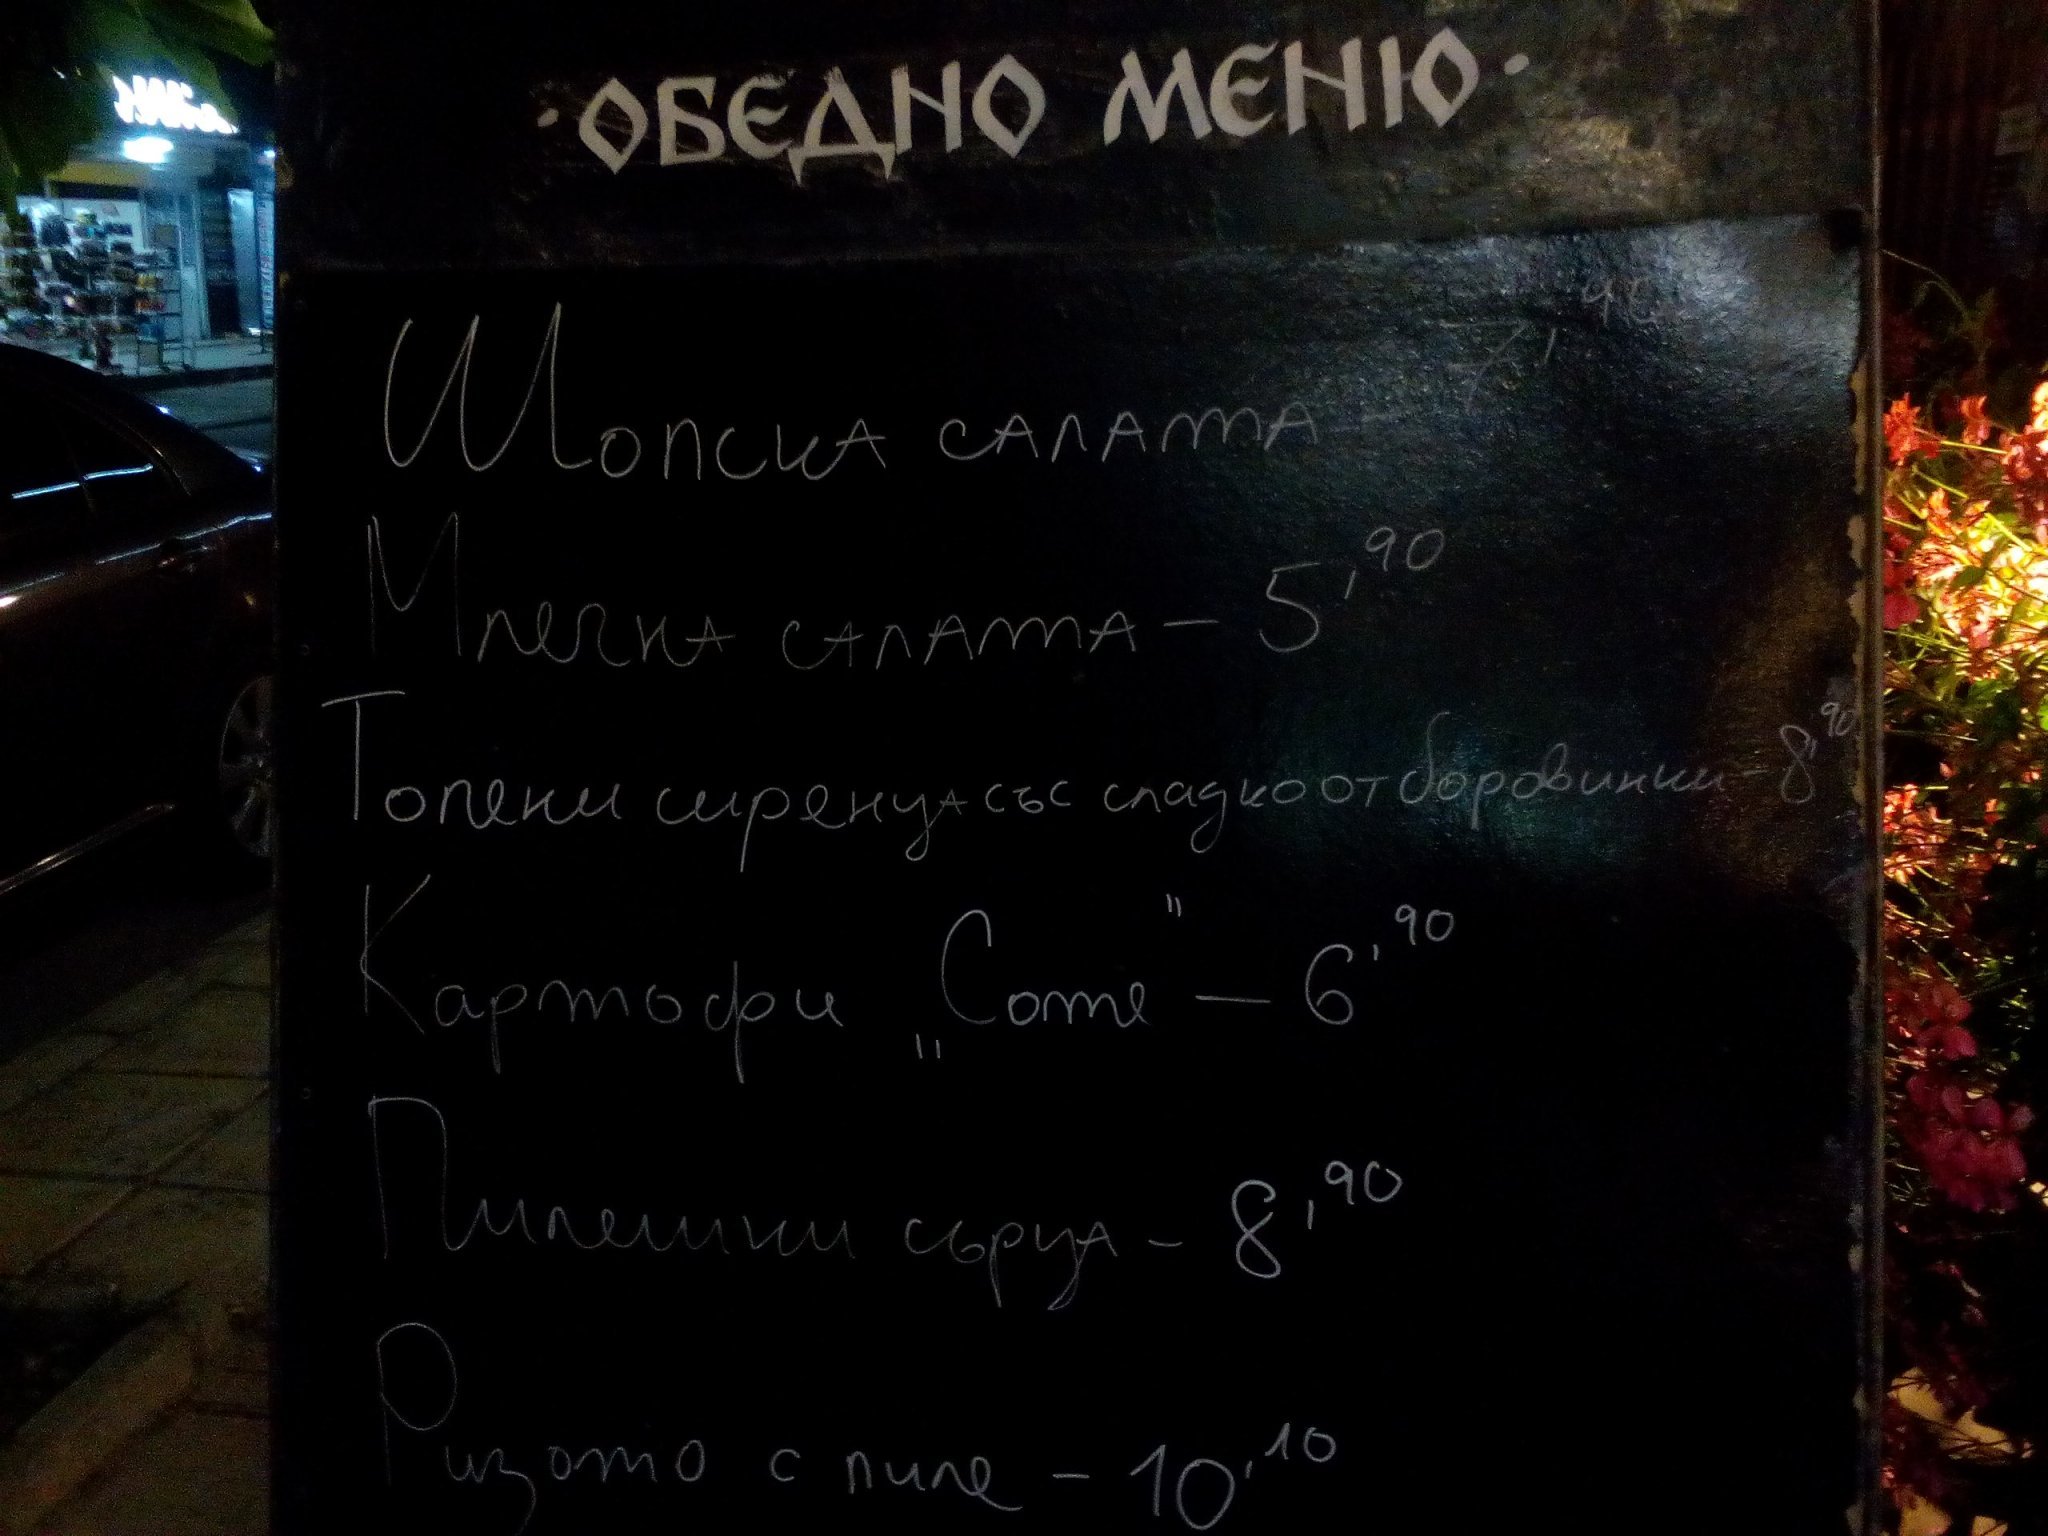 ·ОБЕДНО МЕНЮ·
Шопска салата - 7,90
Млечна салата - 5,90
Топени сиренца със сладко от боровинки - 8,90
Картофи „Соте" - 6,90
Пилешки сърца - 8,90
Ризото с пиле - 10,10